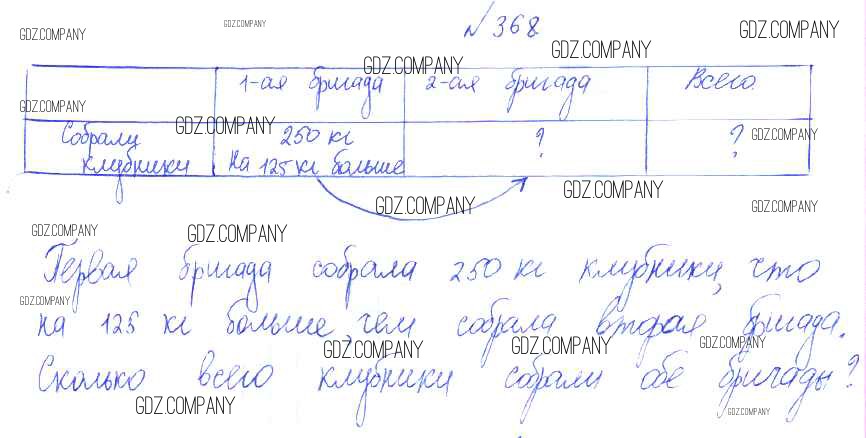 GDZ.COMPANY GDZ.COMPANY №368 GDZ.COMPANY
GDZ.COMPANY
GDZ.COMPANY
1-ая бригада 2-ая бригада Всего
GDZ.COMPANY
Собрали GDZ.COMPANY 250 кг ? ? GDZ.COMPANY
клубники на 125 кг больше
GDZ.COMPANY GDZ.COMPANY
GDZ.COMPANY
GDZ.COMPANY GDZ.COMPANY
Первая бригада собрала 250 кг клубники, что
GDZ.COMPANY
на 125 кг больше, чем собрала вторая бригада.
GDZ.COMPANY GDZ.COMPANY GDZ.COMPANY
Сколько всего клубники собрали обе бригады?
GDZ.COMPANY GDZ.COMPANY